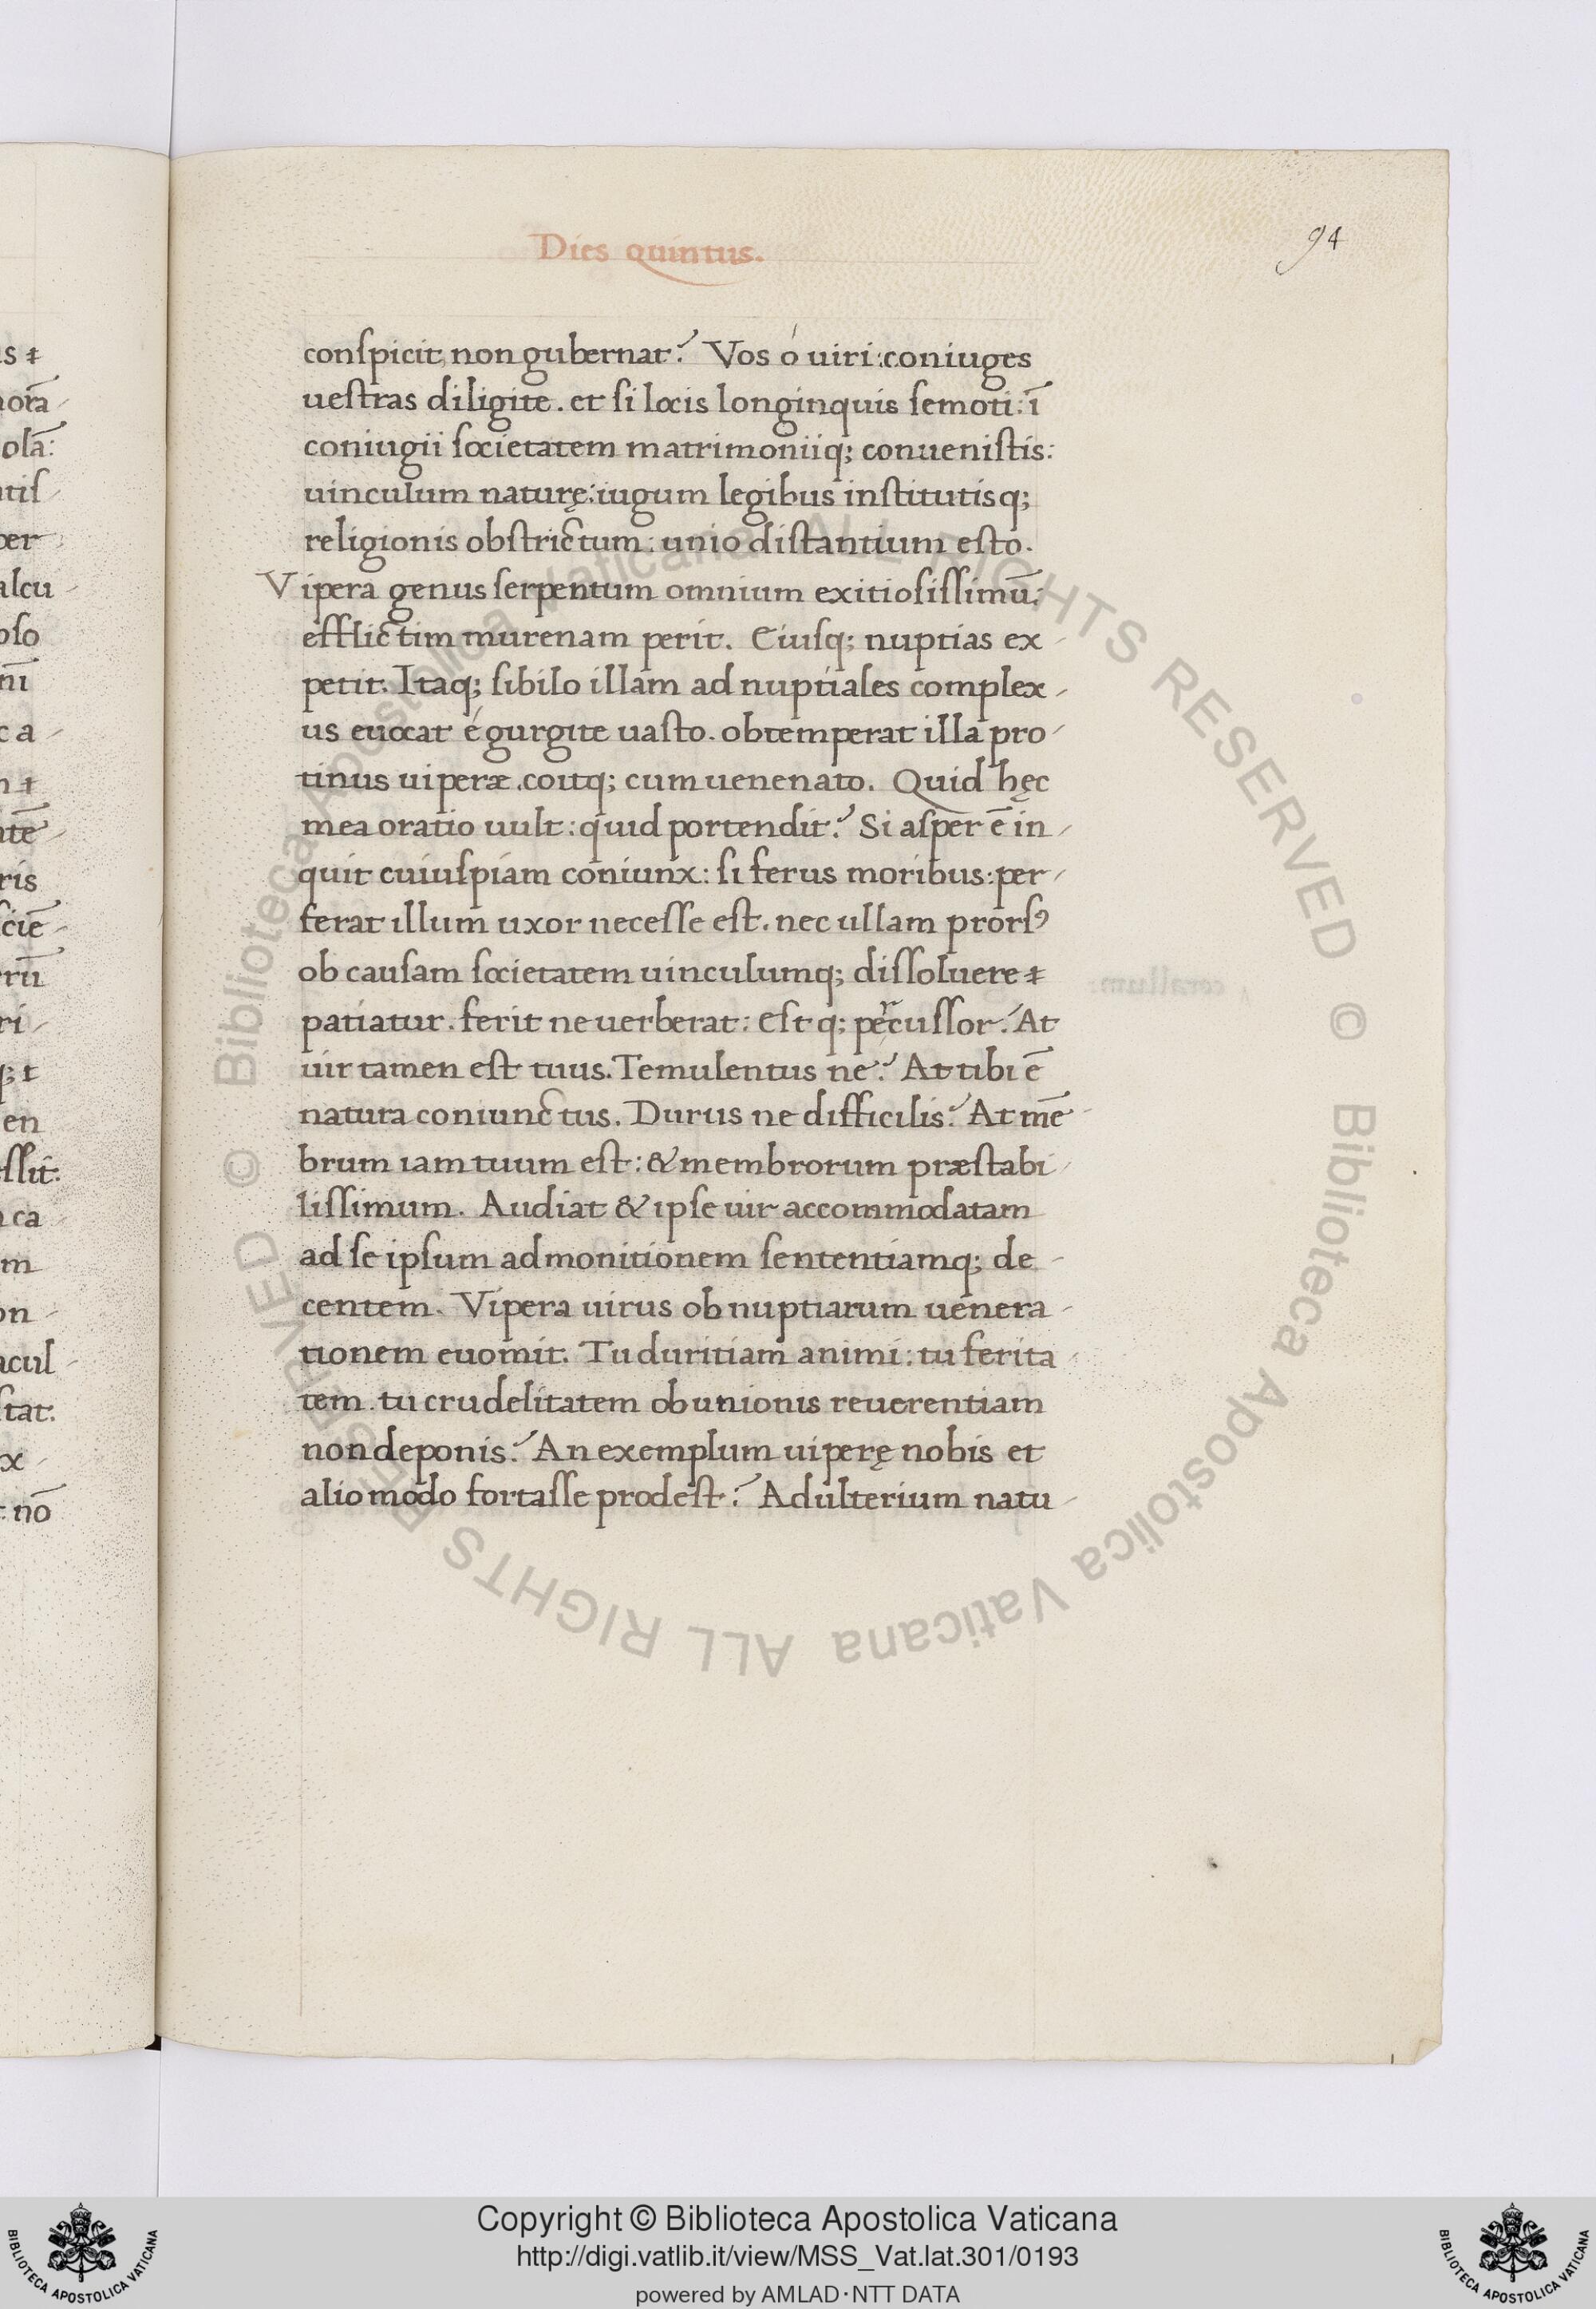 Dies quintus.
94
conſpicit, non gubernat? Vos ó uiri: coniuges
ueſtras diligite. et ſi locis longinquis ſemoti: ī
coniugii ſocietatem matrimoniiq; conueniſtis:
uinculum naturę: iugum legibus inſtitutisq;
religionis obſtrictum: unio diſtantium eſto.
Vipera genus ſerpentum omnium exitioſiſſimū:
efflictim murenam perit. Eiuſq; nuptias ex
petit. Itaq; ſibilo illam ad nuptiales complex
us euocat é gurgite uaſto. obtemperat illa pro
tinus uiperæ. coitq; cum uenenato. Quid hęc
mea oratio uult: quid portendit? Si aſper ē in
quit cuiuſpiam coniunx: ſi ferus moribus: per
ferat illum uxor neceſſe eſt. nec ullam prorſꝰ
ob cauſam ſocietatem uinculumq; diſſoluere ⁊
patiatur. ferit ne uerberat: Eſt q; percuſſor? At
uir tamen eſt tuus. Temulentus ne? At tibi ē
natura coniunctus. Durus ne difficilis? At mē
brum iam tuum eſt: & membrorum præſtabi
liſſimum. Audiat & ipſe uir accommodatam
ad ſe ipſum admonitionem ſententiamq; de
centem. Vipera uirus ob nuptiarum uenera
tionem euomit. Tu duritiam animi: tu ferita
tem. tu crudelitatem ob unionis reuerentiam
non deponis? An exemplum uiperę nobis et
alio modo fortaſſe prodeſt? Adulterium natu
Copyright © Biblioteca Apostolica Vaticana
http://digi.vatlib.it/view/MSS_Vat.lat.301/0193
powered by AMLAD·NTT DATA
BIBLIOTECA APOSTOLICA VATICANA
BIBLIOTECA APOSTOLICA VATICANA
© Biblioteca Apostolica Vaticana ALL RIGHTS RESERVED
© Biblioteca Apostolica Vaticana ALL RIGHTS RESERVED